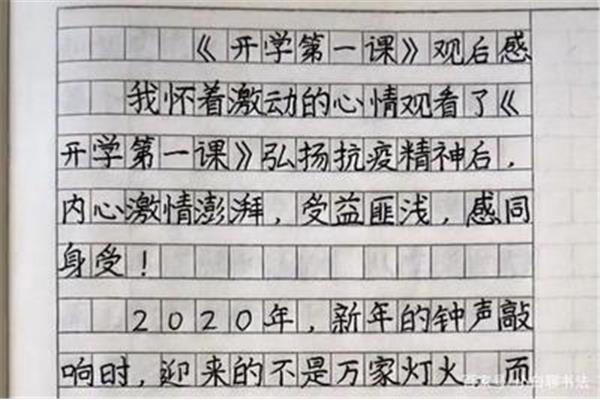 《开学第一课》观后感
我怀着激动的心情观看了《
开学第一课》弘扬抗疫精神后，
内心激情澎湃，受益匪浅，感同
身受！
2020年，新年的钟声敲
响时，迎来的不是万家灯火，而